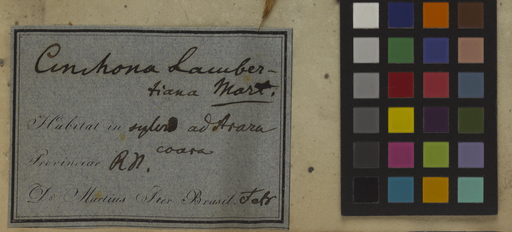 Cinchona Lamber-
tiana Mart.
Habitat in sylvis ad Arara
coara
Provinciae R. N.
Dr. Martius Iter Brasil. Febr